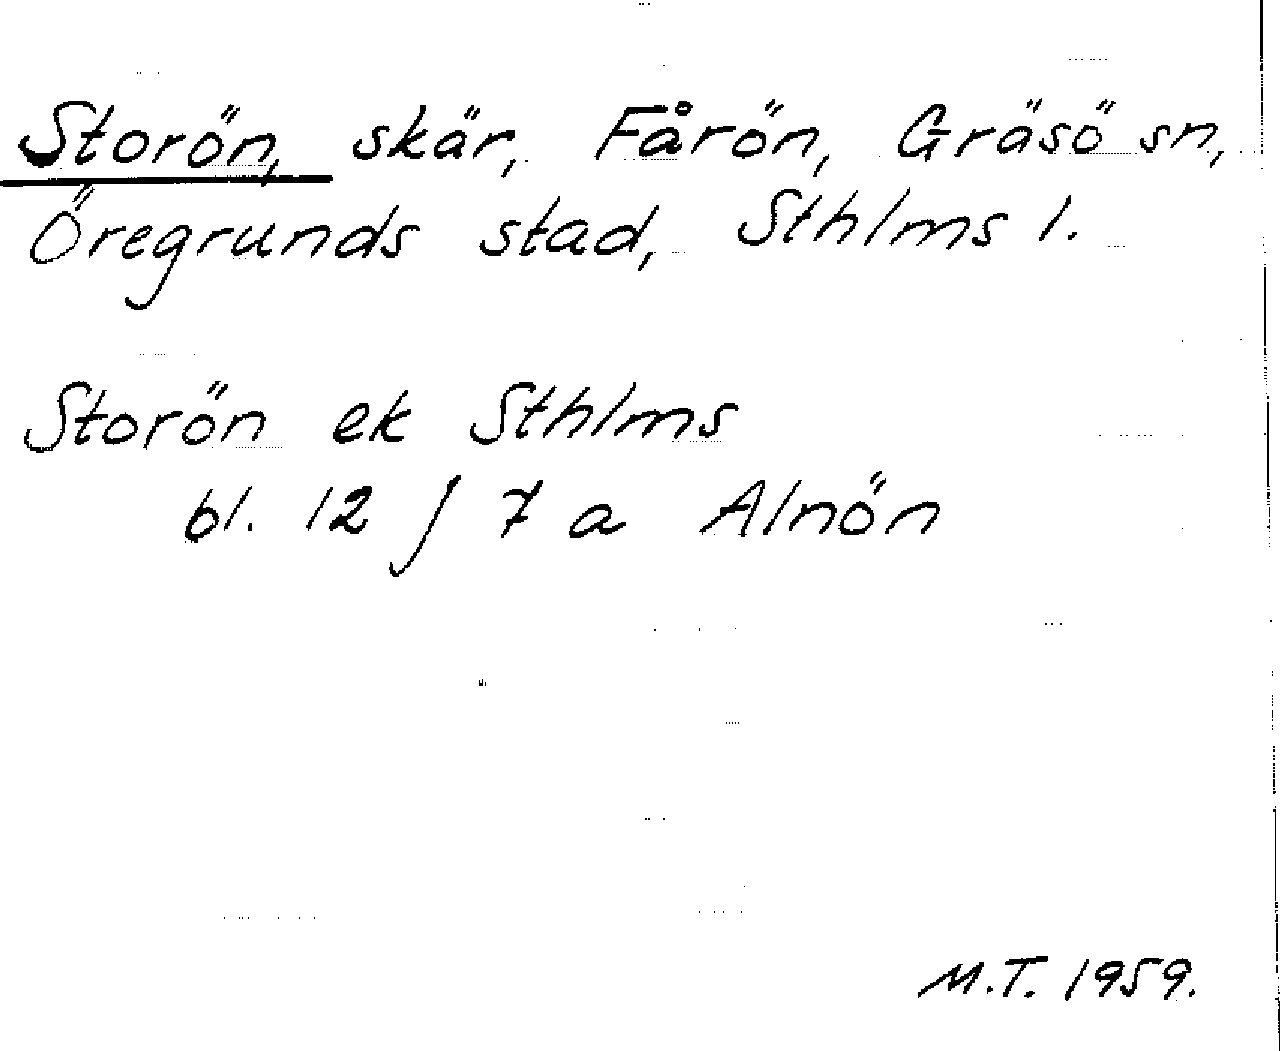 Storön, skär, Fårön, Gräsö sn,
Öregrunds stad, Sthlms l.
Storön ek Sthlms
bl. 12 j 7 a Alnön
M.T. 1959.